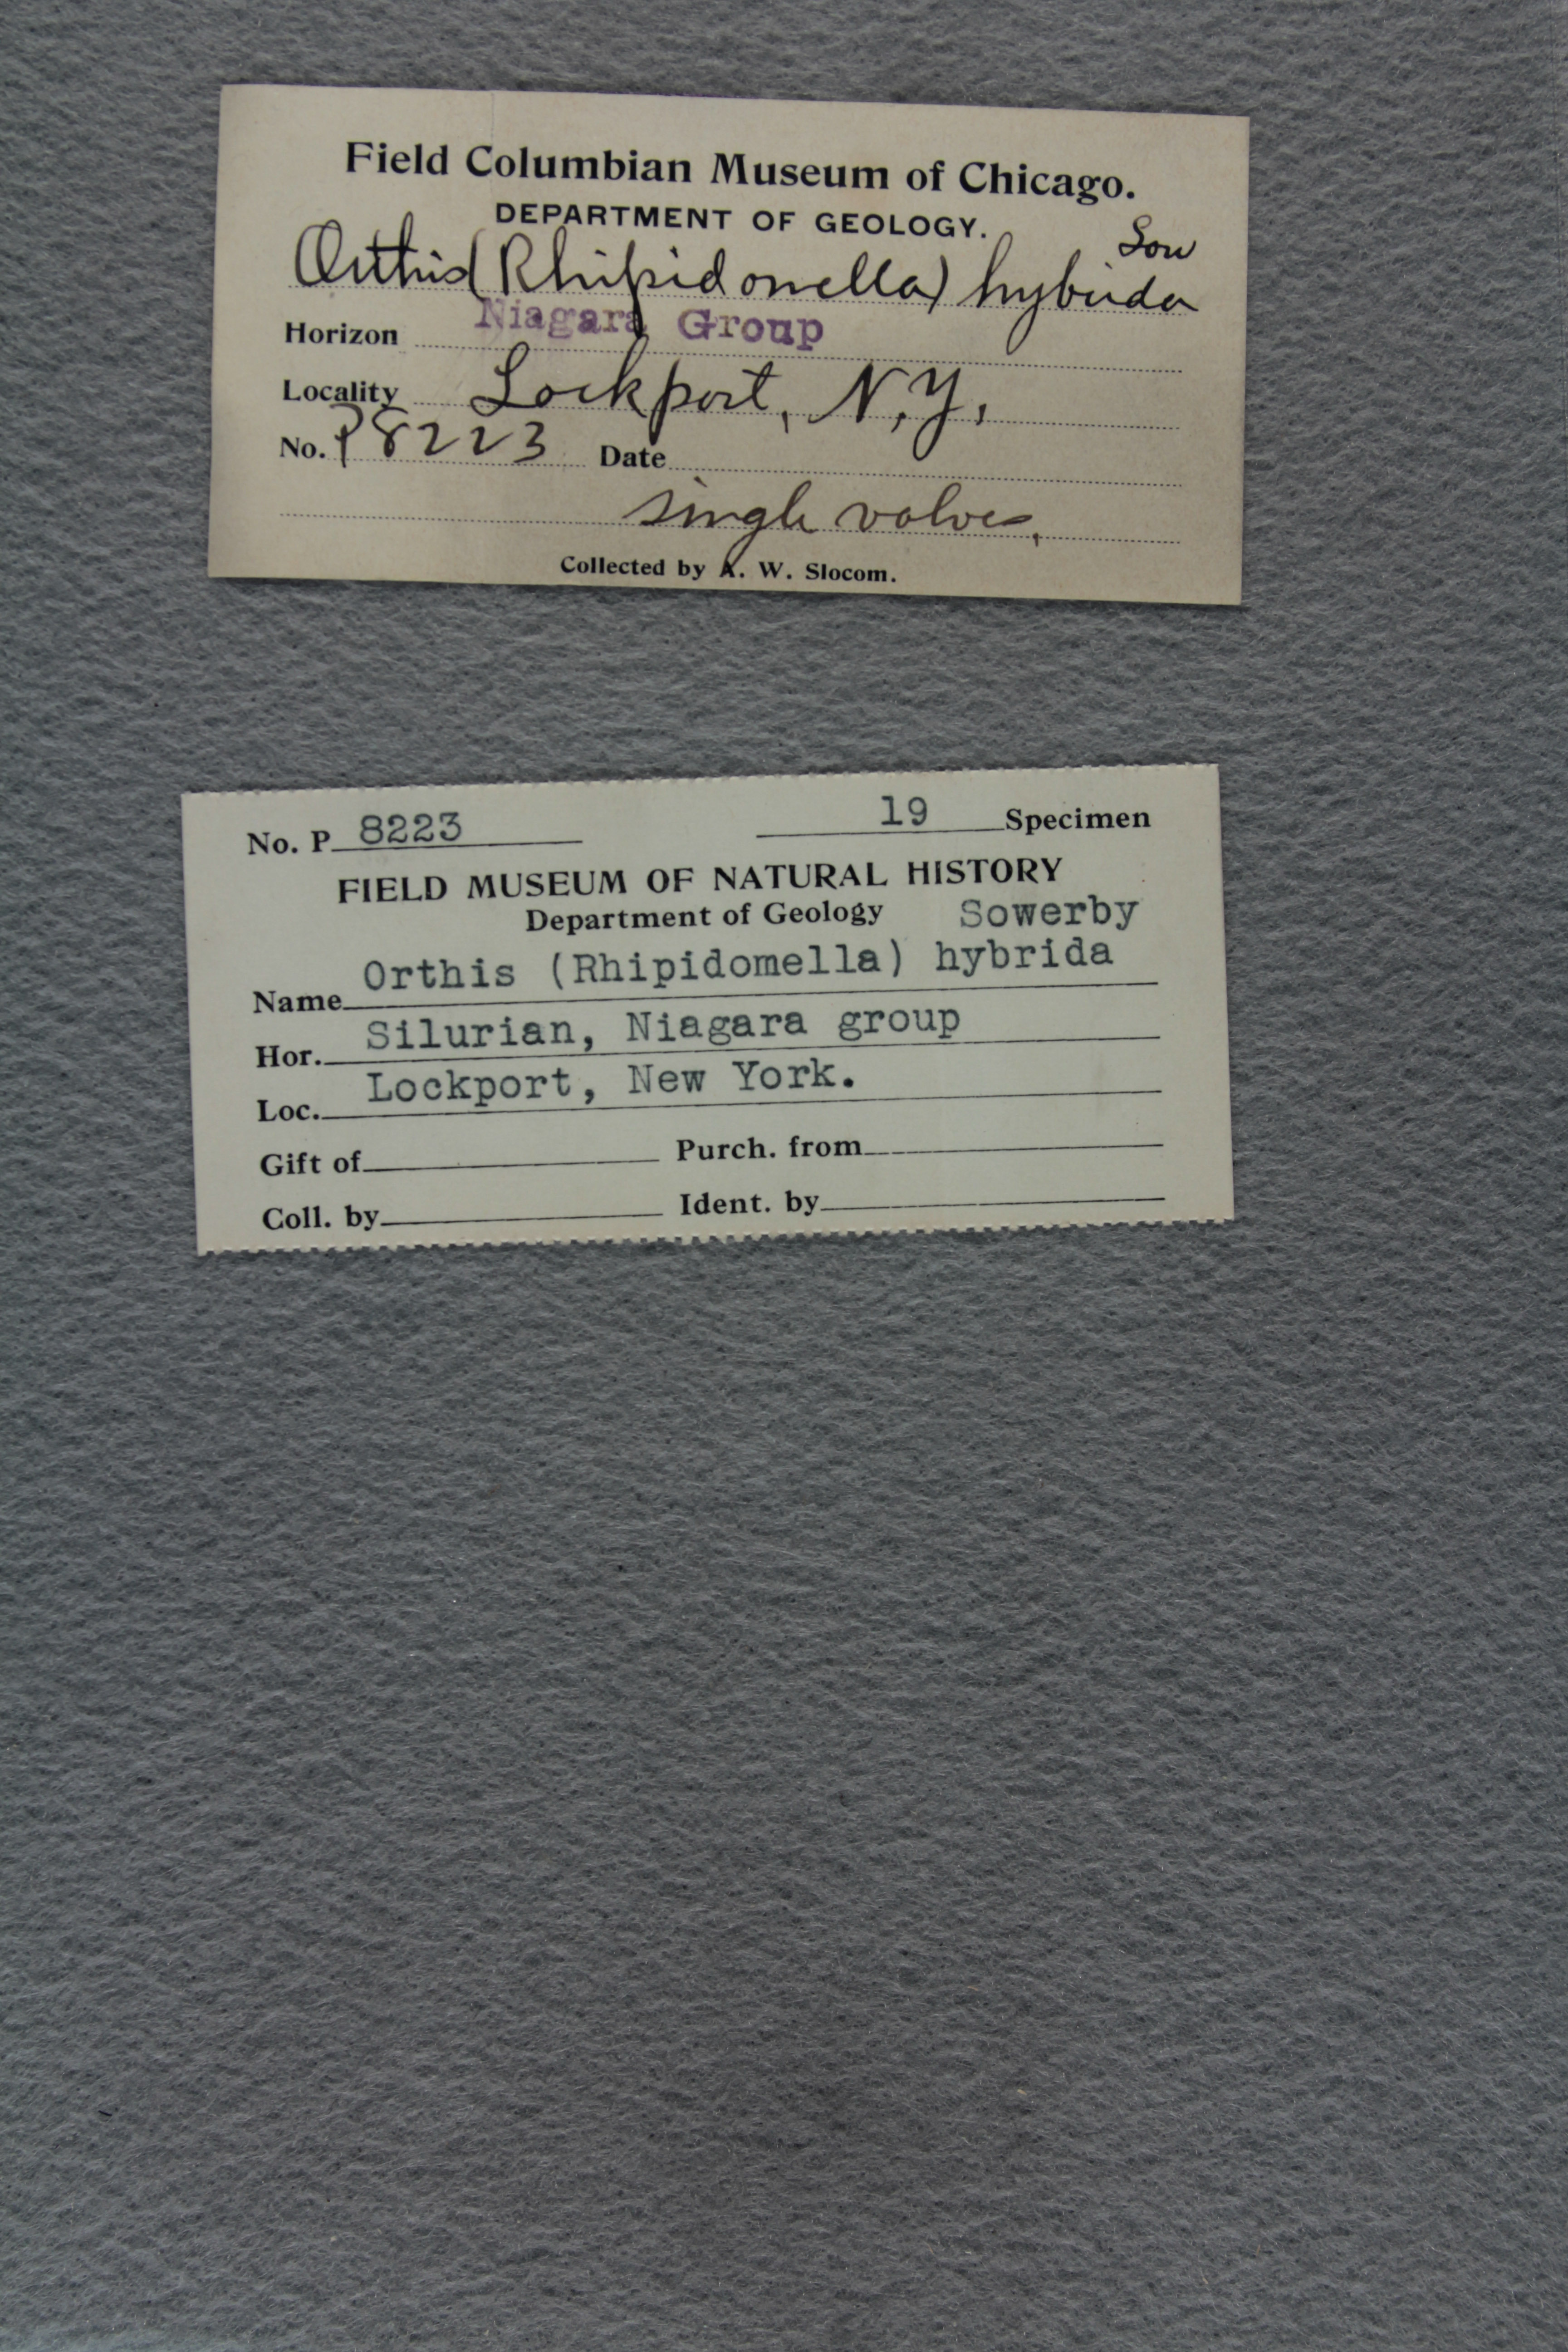 Field Columbian Museum of Chicago.
DEPARTMENT OF GEOLOGY.
Sow
Orthis (Rhipidomella) hybrida
Horizon Niagara Group
Locality Lockport, N.Y.
No. P8223 Date
single valves.
Collected by A. W. Slocom.
No. P 8223 19 Specimen
FIELD MUSEUM OF NATURAL HISTORY
Department of Geology Sowerby
Name Orthis (Rhipidomella) hybrida
Hor. Silurian, Niagara group
Loc. Lockport, New York.
Gift of Purch. from
Coll. by Ident. by